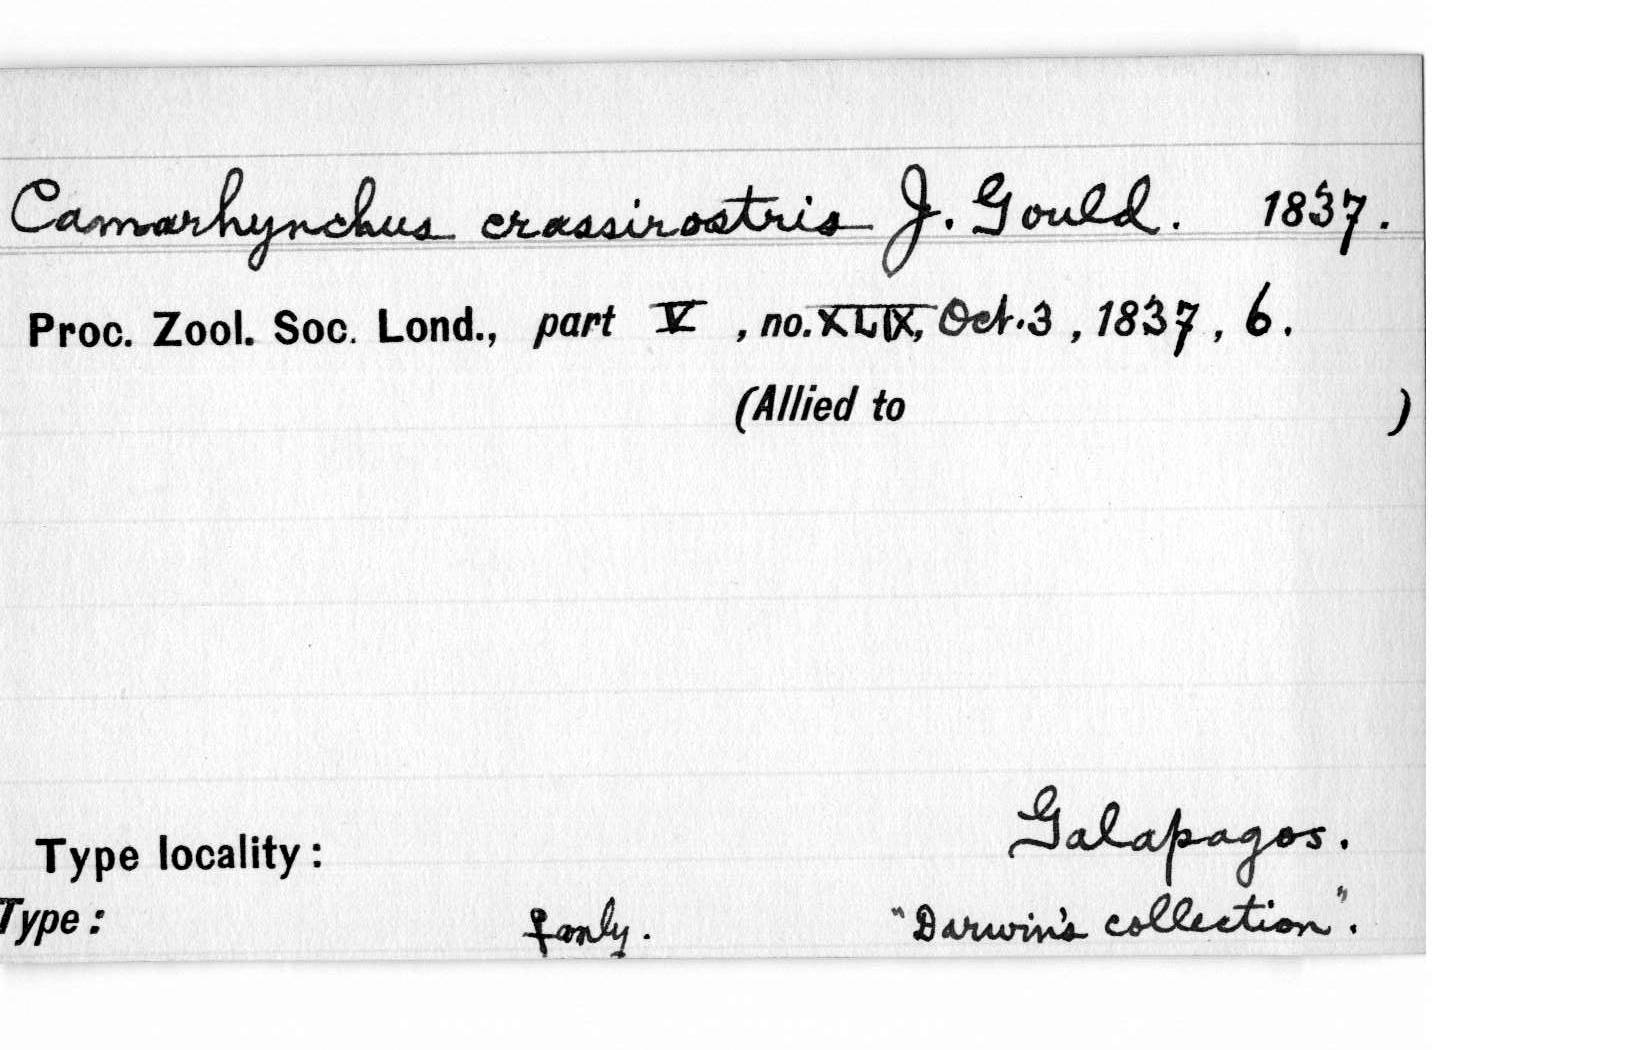 Camarhynchus crassirostris J. Gould. 1837.
Proc. Zool. Soc. Lond., part V, no. XLIX, Oct. 3, 1837, 6.
(Allied to )
Type locality: Galapagos.
Type: ♀ only. "Darwin's collection".